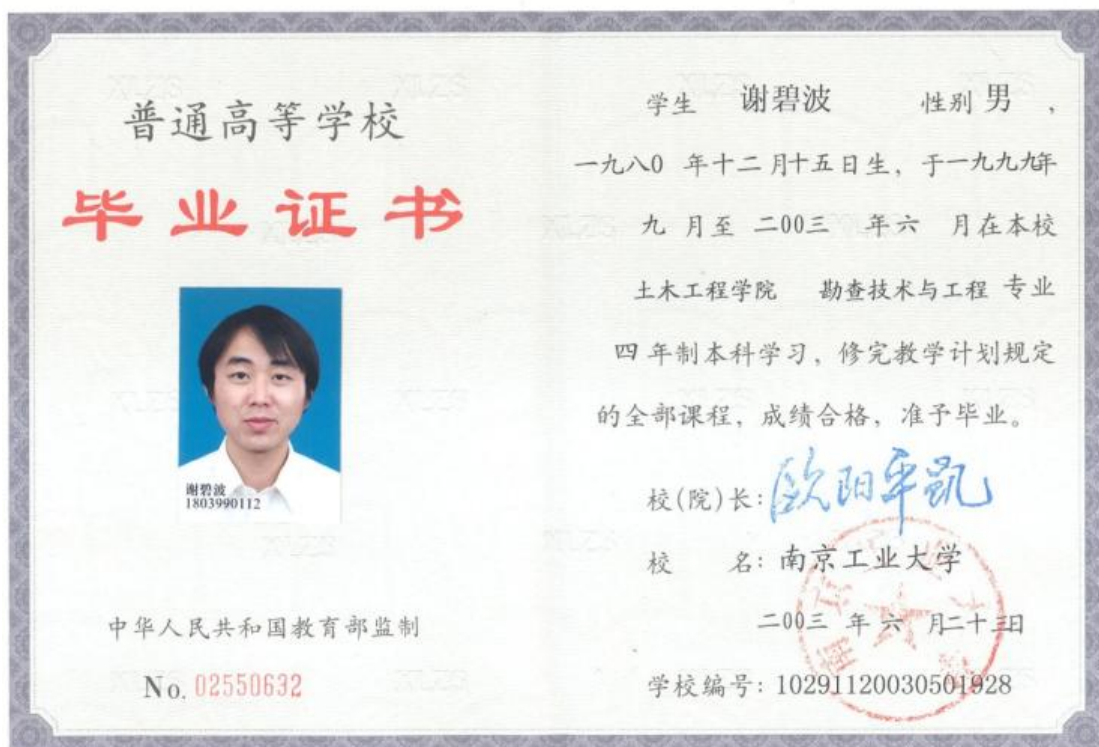 普通高等学校
毕业证书
谢碧波
1803990112
中华人民共和国教育部监制
No. 02550632
学生 谢碧波 性别 男 ,
一九八0 年十二月十五日生, 于一九九九年
九 月至 二00三 年六 月在本校
土木工程学院 勘查技术与工程 专业
四 年制本科学习, 修完教学计划规定
的全部课程, 成绩合格, 准予毕业。
校(院)长: 欧阳平凯
校 名: 南京工业大学
二00三 年 六 月二十三日
学校编号: 10291120030501928